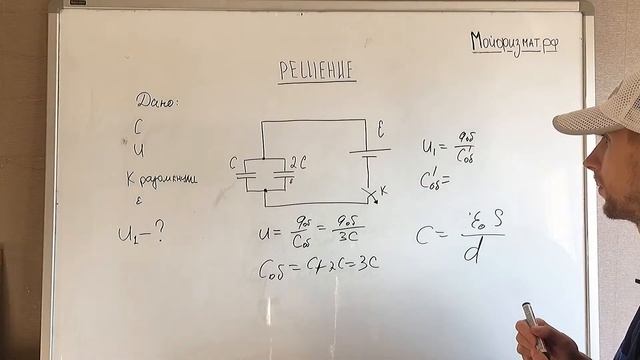 Мойфизмат.рф
РЕШЕНИЕ
Дано:
C
U
K разомкнули
ε
U₁ – ?
C
2C
ε
ℰ
K
U = qоб/Cоб = qоб/3C
Cоб = C + 2C = 3C
U₁ = qоб/C'об
C'об =
C = ε₀S/d